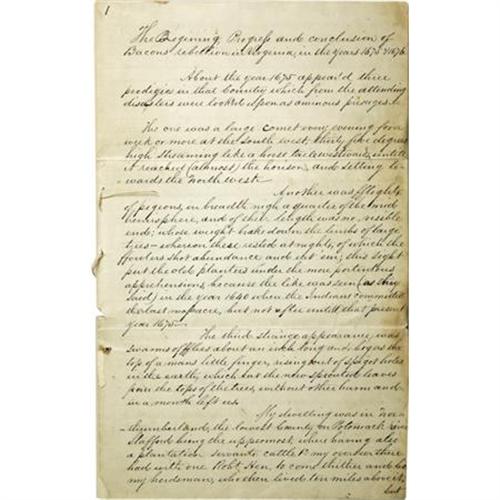 1
The Begining Progress and conclusion of
Bacons rebellion in Virginia, in the years 1675 & 1676.
About the year 1675 appear'd three
prodigies in that Country which from the attending
disasters were look'd upon as ominous presages.
The one was a large comet every evening for a
week or more at the South west, thirty five degrees
high Streaming like a horse taile westward, untill
it reached (almost) the horison, and setting to-
wards the North west.
Another was fflights
of pigeons, in breadth nigh a quarter of the mid
hemisphere, and of their length was no visible
end; whose weight brake down the limbs of large
trees whereon these rested at nights, of which the
fowlers shot abundance and eat 'em; this sight
put the old planters under the more portentous
apprehensions, because the like was seen (as they
said) in the year 1640 when the Indians committed
the last massacre, but not after untill that present
year 1675.
The third strange appearance was
Swarms of fflies about an inch long and big as the
top of a mans little finger, rising out of spigot holes
in the earth, which eat the new sprouted leaves
from the tops of the trees, without other harm and
in a month left us.
My dwelling was in Nor-
thumberland, the lowest County on Potomack river
Stafford being the uppermost, where having also
a plantation servants cattle &c my overseer there
had with one Robt Hen, to come thither and be
my herdsman, who then lived ten miles above it,
but